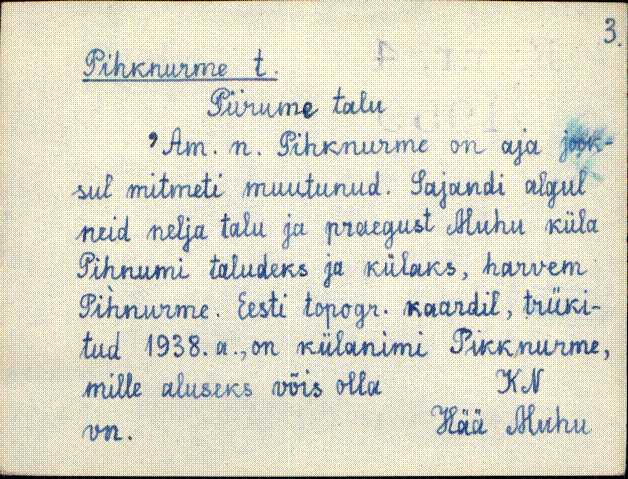 3.
Pihknurme t.
Piirume talu
’Am. n. Pihknurme on aja jook-
sul mitmeti muutunud. Sajandi algul
neid nelja talu ja praegust Muhu küla
Pihnumi taludeks ja külaks, harvem
Pihnurme. Eesti topogr. kaardil, trüki-
tud 1938. a., on külanimi Pikknurme,
mille aluseks võis olla KN
vn. Hää Muhu